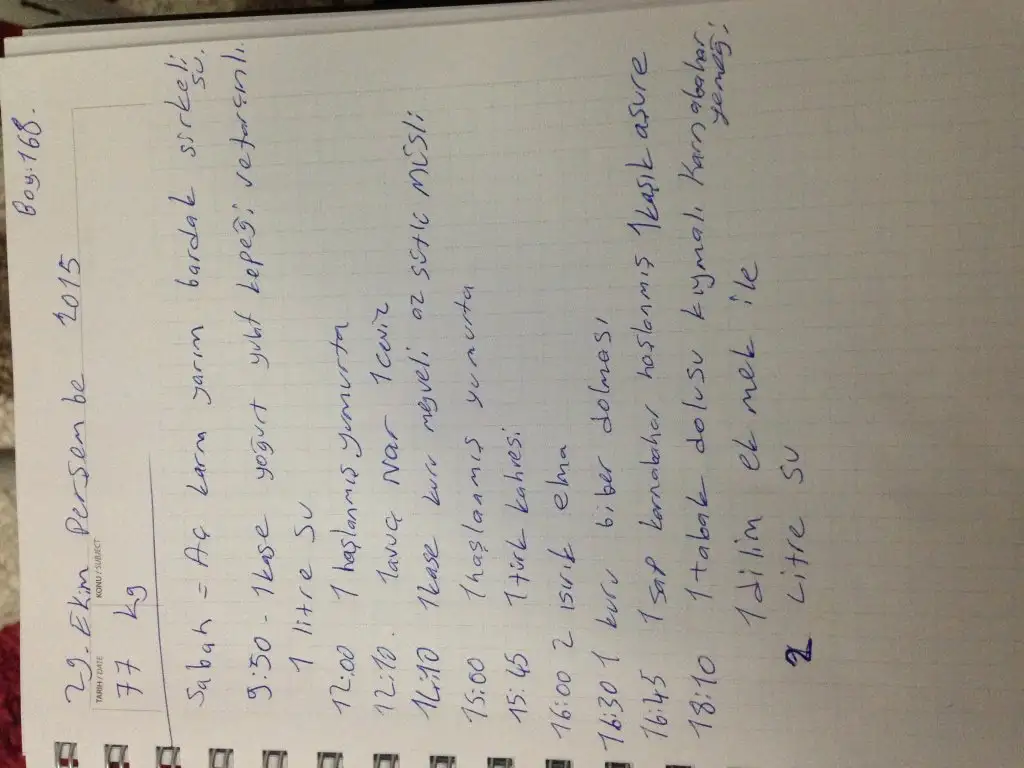 Boy: 168.
29. Ekim Perşembe 2015
TARİH / DATE KONU / SUBJECT
77 kg
Sabah = Aç karnı yarım bardak sirkeli su.
9:50 - 1 kase yoğurt yulaf kepeği
1 litre su
12:00 1 haşlanmış yumurta
12:10. 1 avuç Nar 1 ceviz
1kase kuru meyveli az sütlü müsli
15:00 1 haşlanmış yumurta
15:45 1 türk kahvesi
16:00 2 ısırık elma
16:30 1 kuru biber dolması
16:45 1 sap karnabahar haşlanmış 1 kaşık aşure
18:10 1 tabak dolusu kıymalı Karnabahar yemeği
1 dilim ekmek ile
2 Litre su